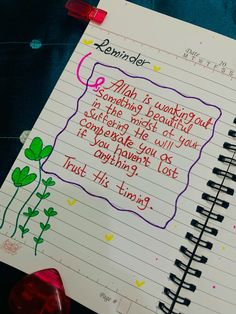 Reminder
Date 20
M T W T F S S
Allah is working out
Something beautiful
in the midst of your
Suffering He will
compensate you as
if you haven't lost
anything.
Trust His timing.
Page #